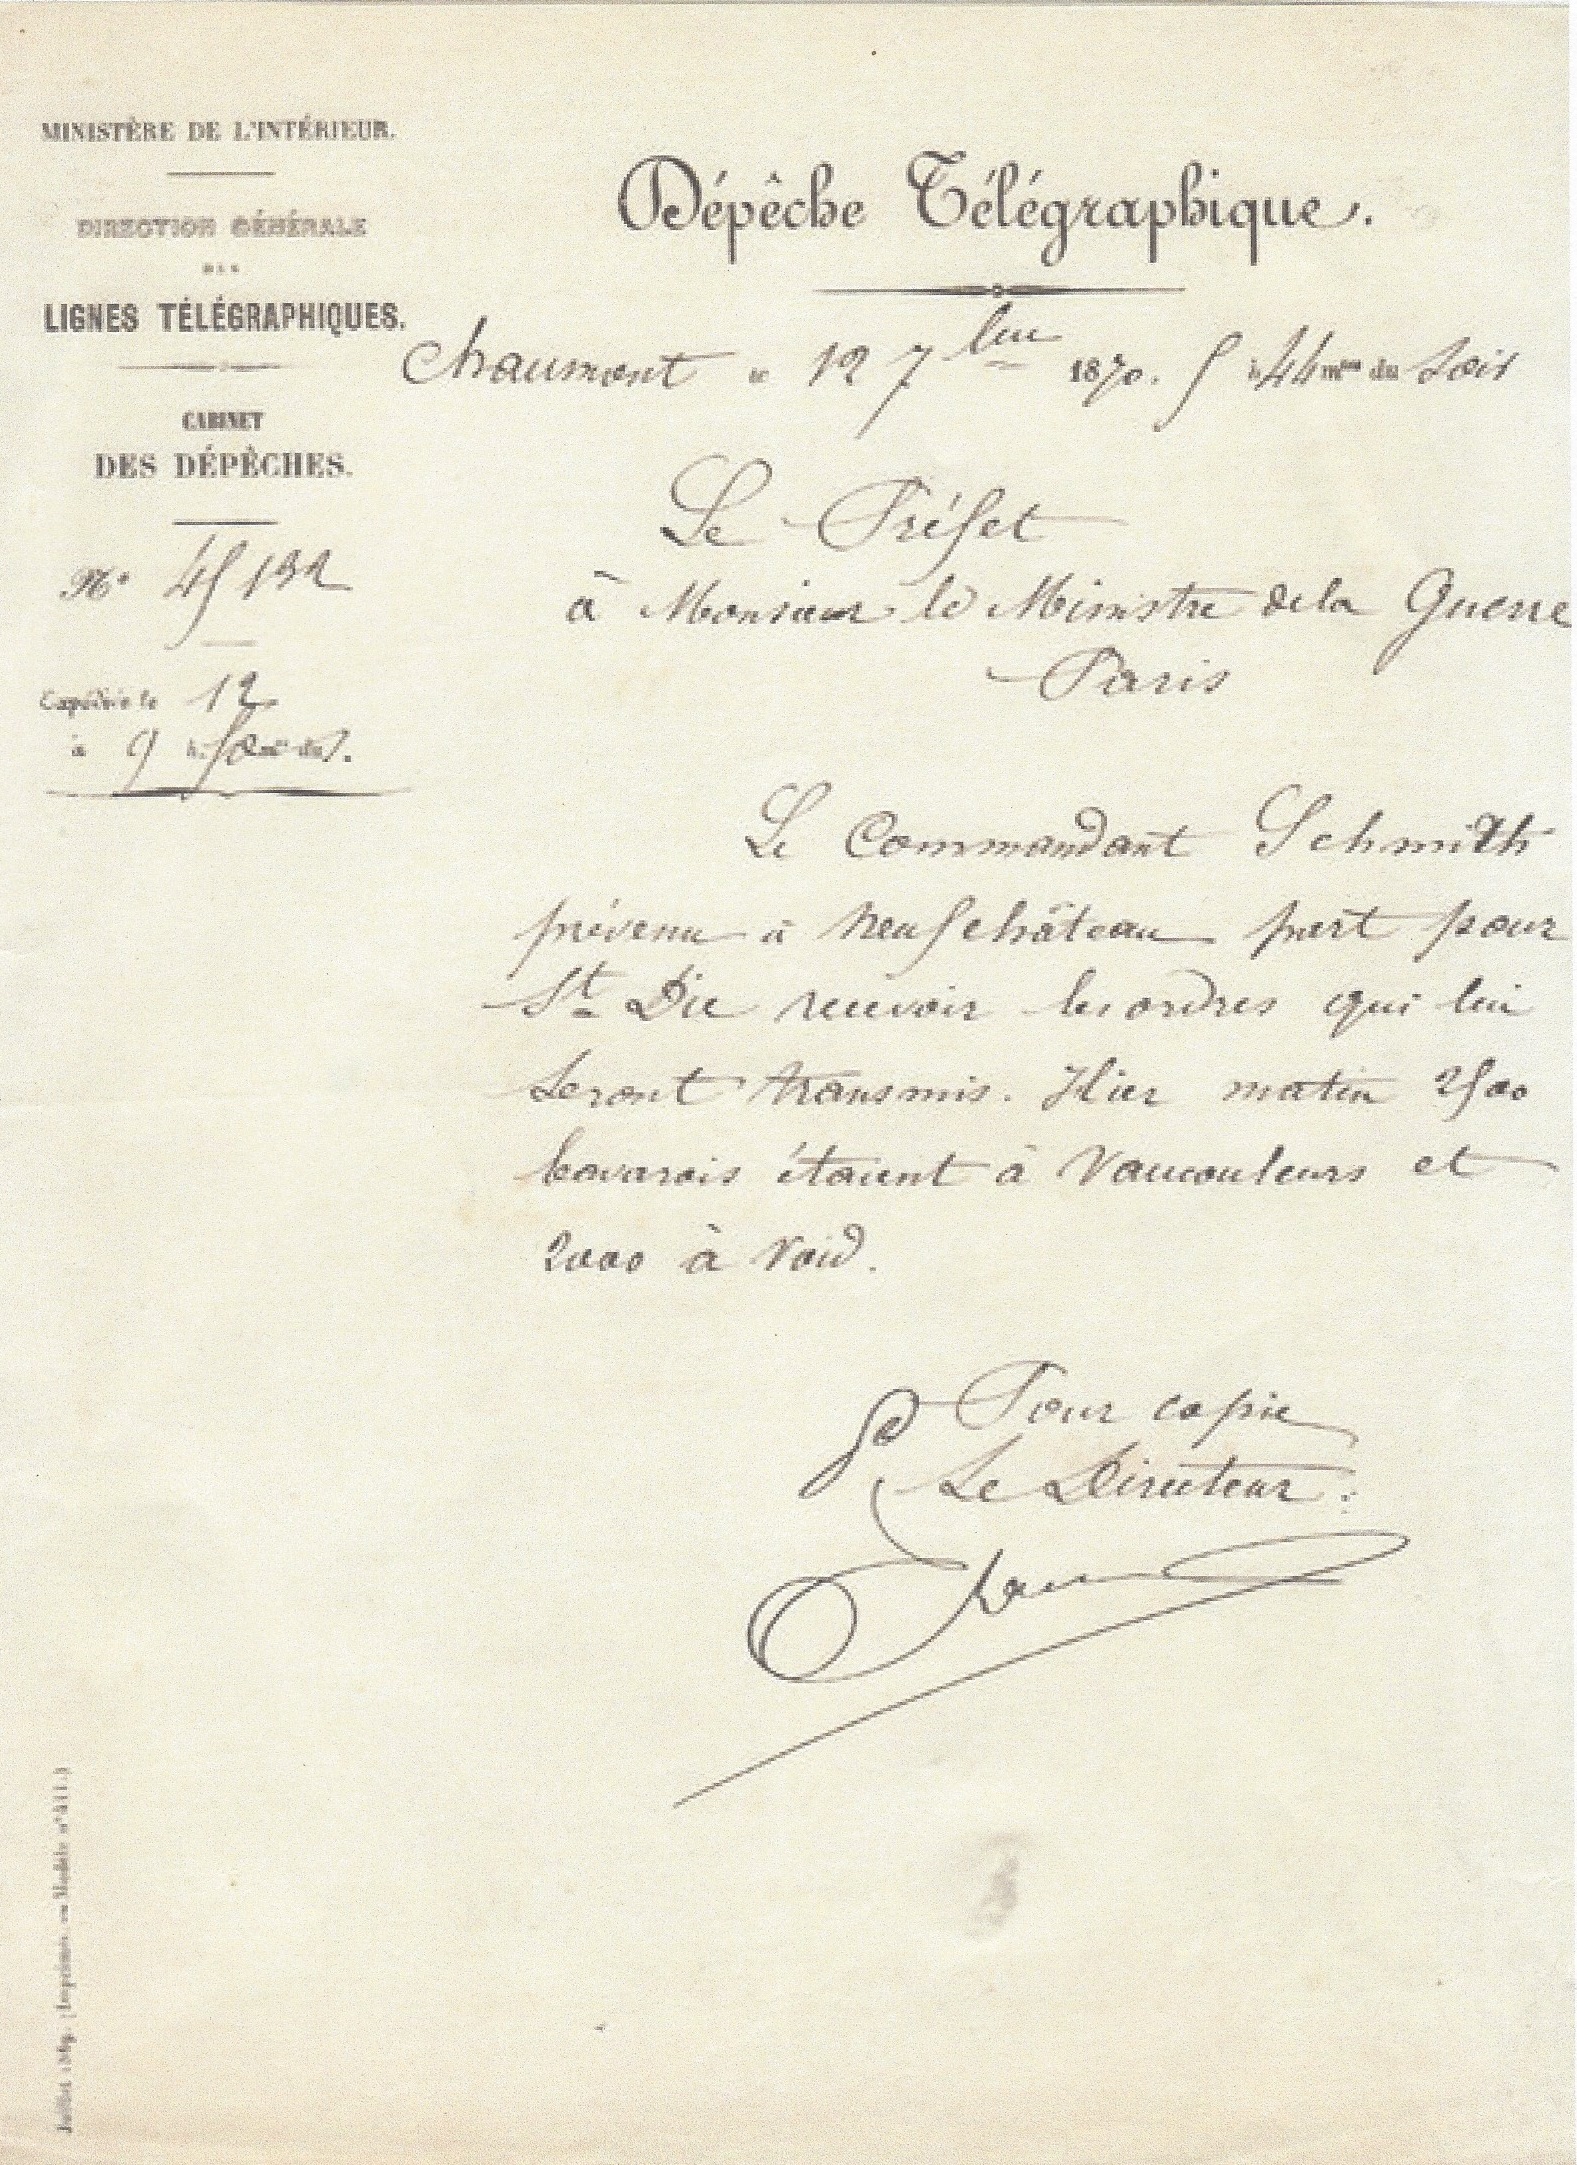 MINISTÈRE DE L'INTÉRIEUR.
DIRECTION GÉNÉRALE
DES
LIGNES TÉLÉGRAPHIQUES.
CABINET
DES DÉPÊCHES.
N° 45132
Expédiée le 12
à 9 h. 50 m. du s.
Dépêche Télégraphique.
Chaumont le 12 7bre 1870. 5 h 44 mes du Soir
Le Préfet
à Monsieur le Ministre de la Guerre
Paris
Le Commandant Schmith
prévenu à Neufchâteau part pour
St Die recevoir les ordres qui lui
seront transmis. Hier matin 2500
bavarois étaient à Vaucouleurs et
2000 à Void.
Pour copie
Le Directeur :
Juillet 1869. (Imprimés. Modèle n° 211.)